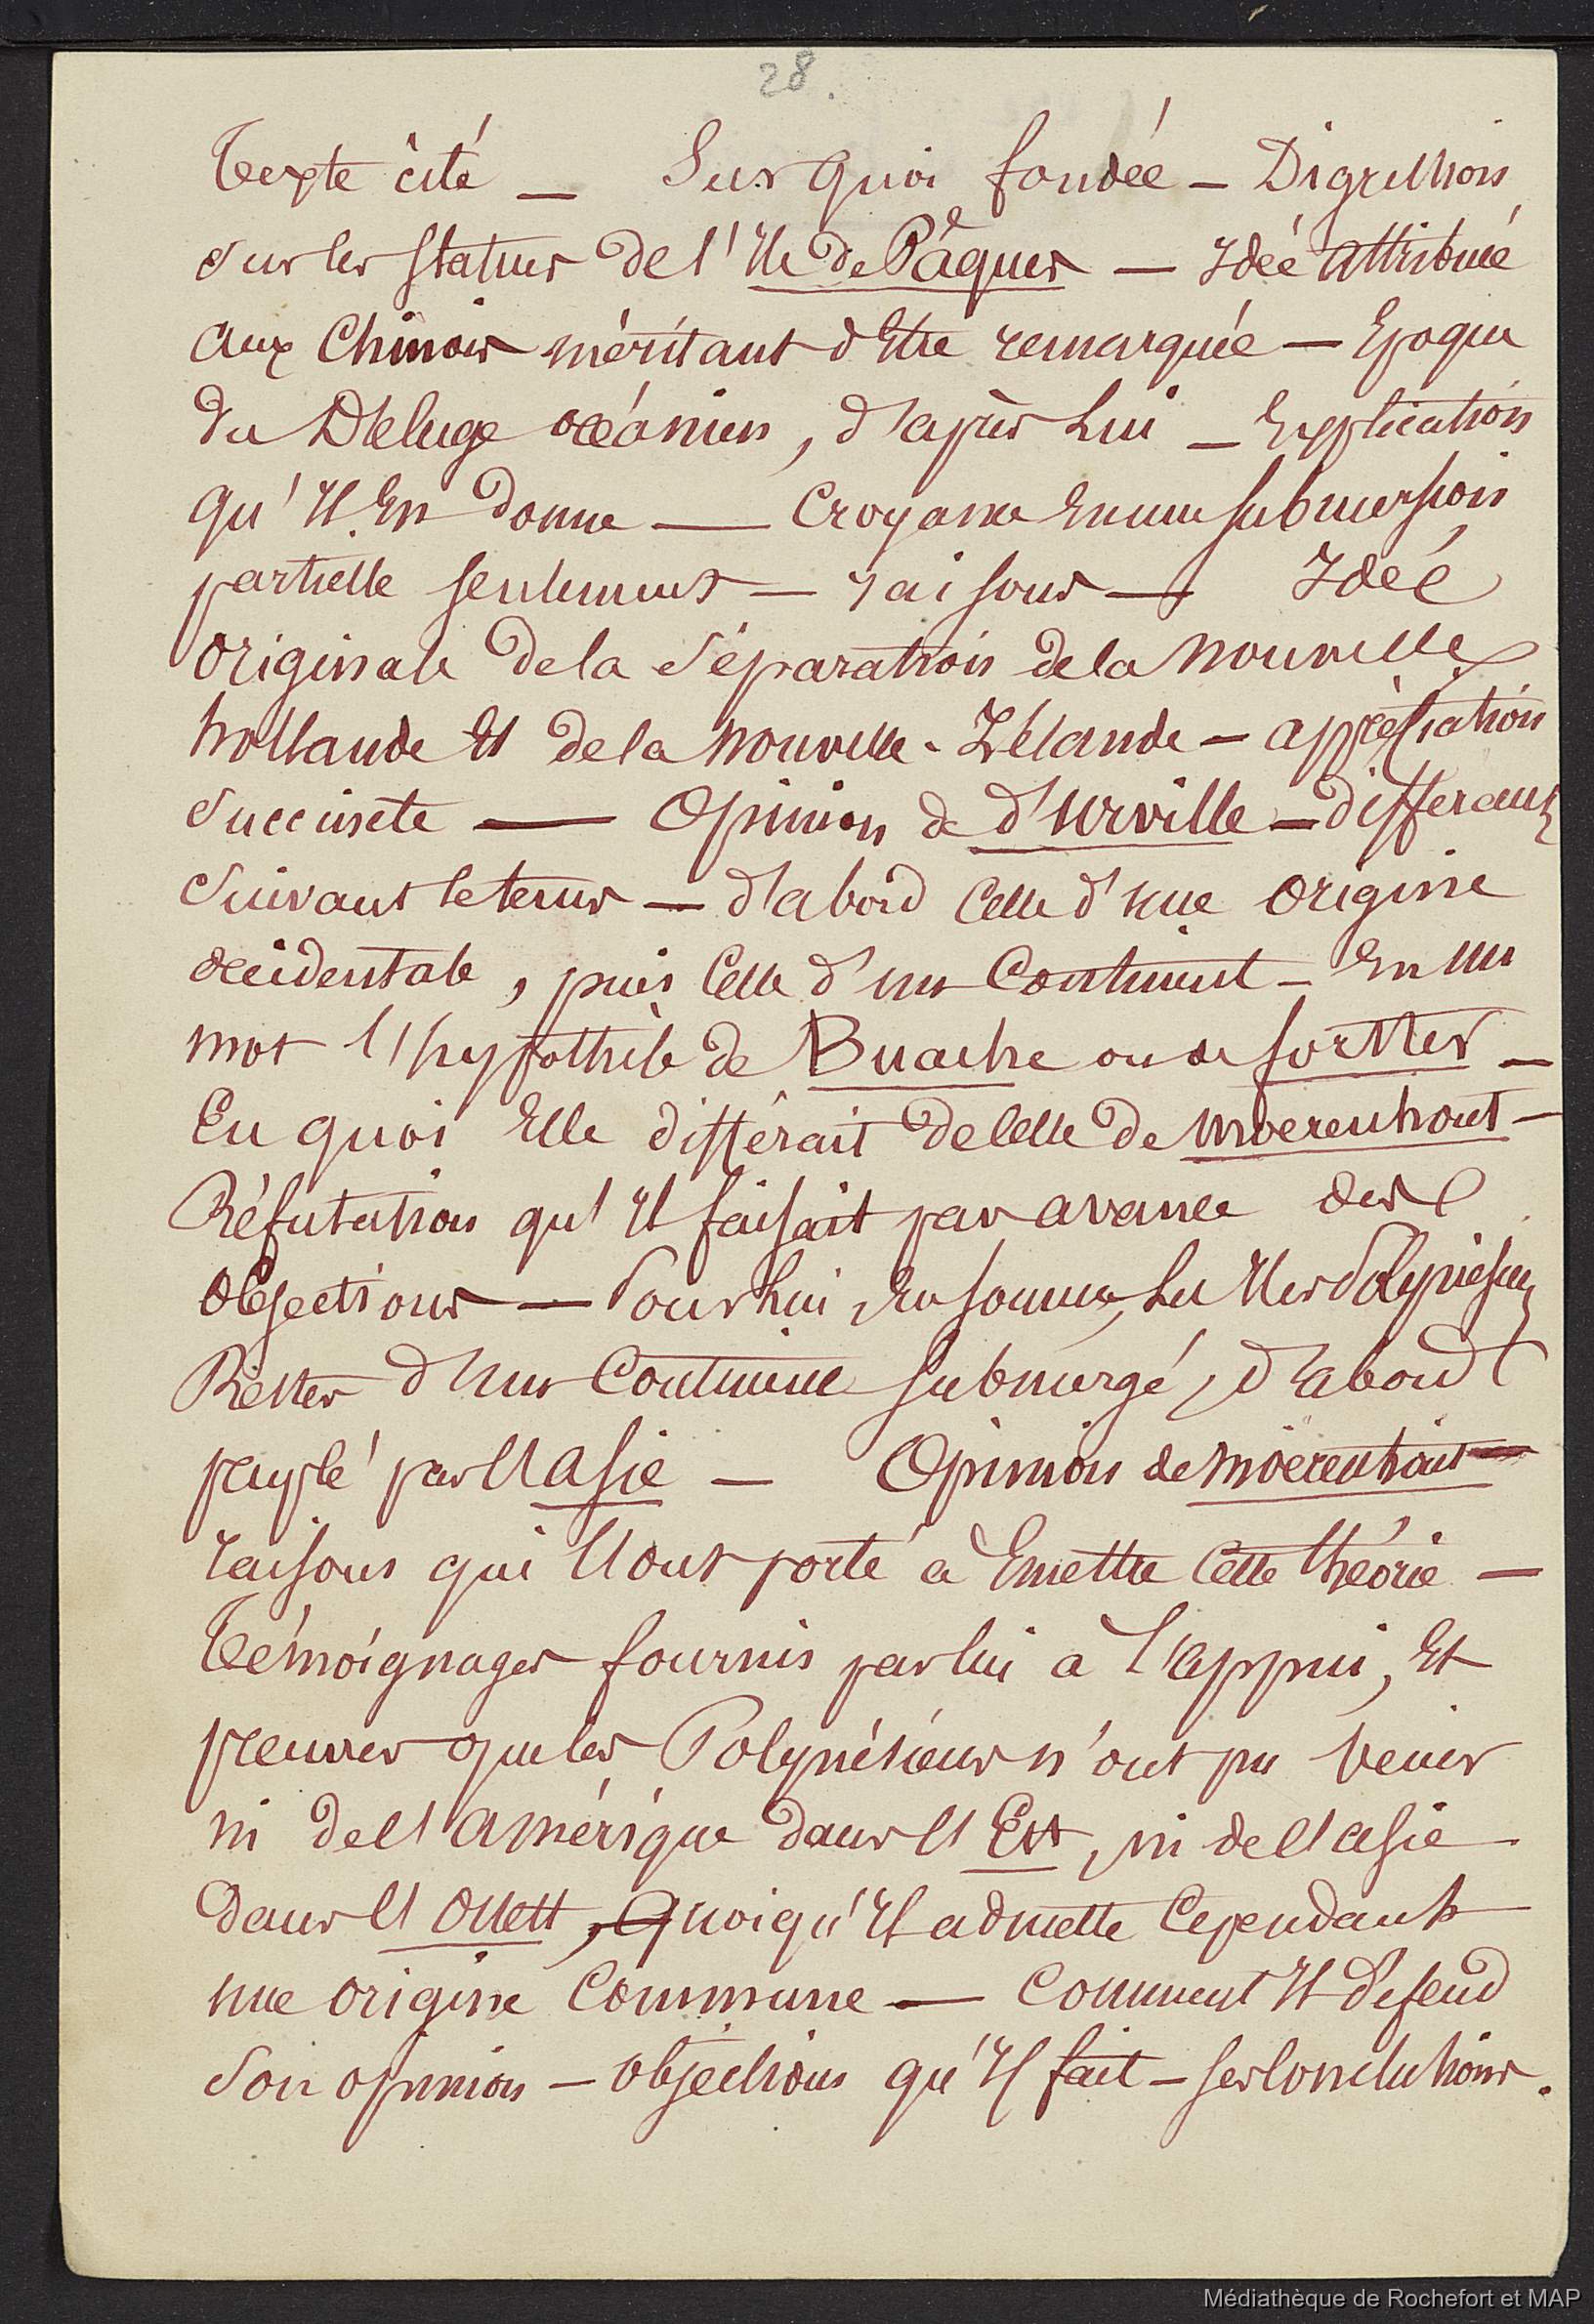 28.
Texte cité — Sur quoi fondée — Digression
sur les statues de l'Ile de Pâques — Idée attribuée
aux Chinois méritant d'Etre remarquée — Epoque
du Déluge océanien, d'après Lui — Explication
qu'Il En donne — Croyance En une submersion
partielle seulement — raisons — Idée
originale de la séparation de la nouvelle
hollande Et de la nouvelle-Zélande — appréciation
succincte — Opinion de d'Urville — differant
suivant le tems — d'abord Celle d'une origine
occidentale, puis Celle d'un Continent — En un
mot l'hypothèse de Buache ou de forster —
En quoi Elle différait de Celle de moerenhout —
Réfutation qu'Il faisait par avance des
objections — Pour Lui, En somme, Les Iles Polynésien
Restes d'un Continent submergé, d'abord
peuplé par l'asie — Opinion de moërenhout —
raisons qui l'ont porté à Emettre Cette théorie —
Témoignages fournis par lui à l'appui, Et
preuves que les Polynésiens n'ont pu venir
ni de l'amérique dans l'Est, ni de l'asie
dans l'Ouest, Quoiqu'Il admette Cependant
une origine Commune — Comment Il défend
son opinion — objections qu'Il fait — ses Conclusions.
Médiathèque de Rochefort et MAP